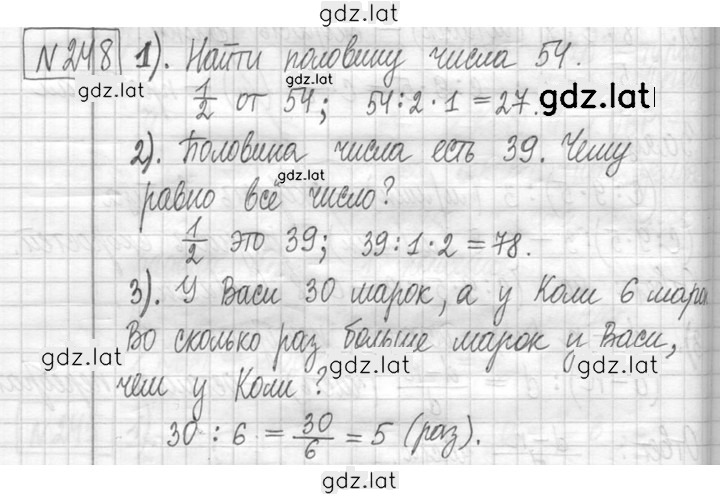 gdz.lat
N 248 1). Найти половину числа 54.
gdz.lat
gdz.lat gdz.lat
1/2 от 54; 54:2·1=27.
2). Половина числа есть 39. Чему
gdz.lat
равно всё число?
1/2 это 39; 39:1·2=78.
3). У Васи 30 марок, а у Коли 6 мар
Во сколько раз больше марок и Васи,
gdz.lat gdz.lat gdz.lat
чем у Коли?
30 : 6 = 30/6 = 5 (раз).
gdz.lat